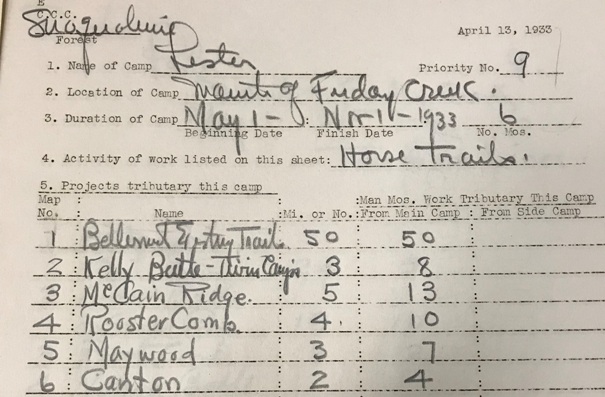 E
C.C.C.
Snoqualmie
Forest
April 13, 1933
1. Name of Camp Lester Priority No. 9
2. Location of Camp Mouth of Friday Creek.
3. Duration of Camp May 1 - : Nov 1 - 1933 6
Beginning Date Finish Date No. Mos.
4. Activity of work listed on this sheet: Horse Trails.
5. Projects tributary this camp
Map : : :Man Mos. Work Tributary This Camp
No. : Name :Mi. or No.:From Main Camp : From Side Camp
1 : Trail 50 50
2 : Kelly Butte - Twin Camps 3 8
3 : McCain Ridge. 5 13
4 : Rooster Comb. 4. 10
5 : Maywood 3 7
6 : Canton 2 4